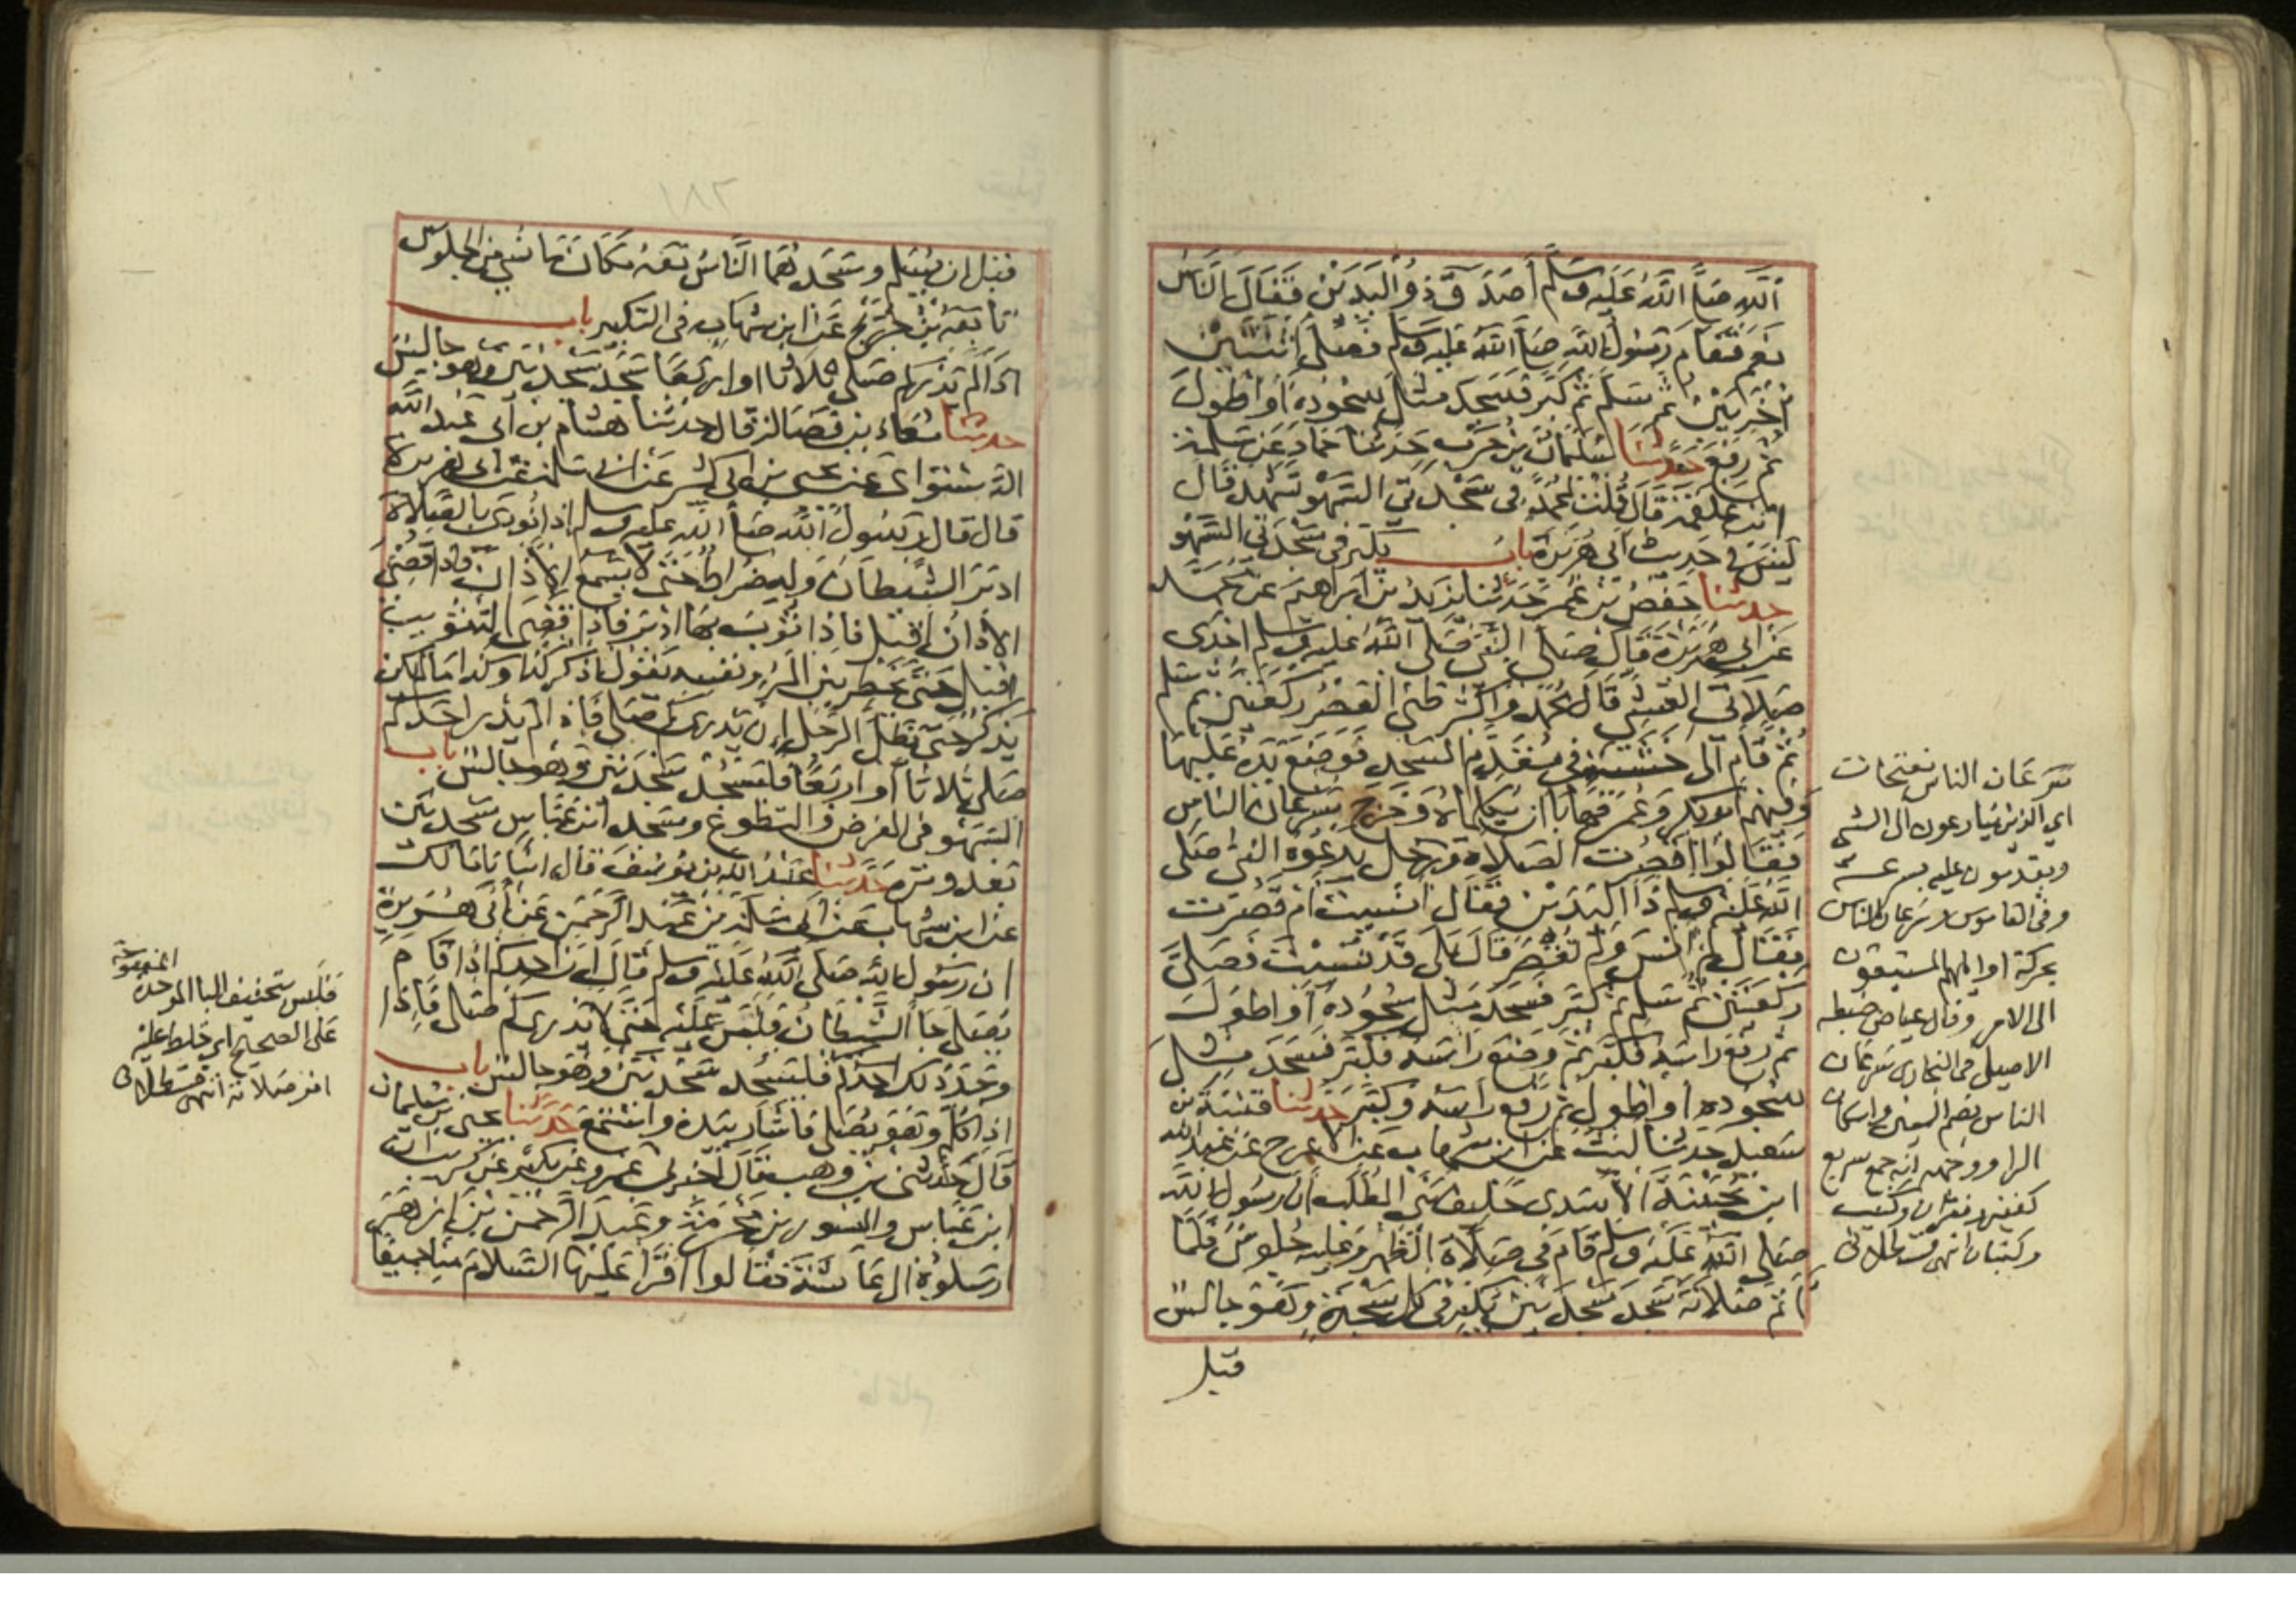 الله صلى الله عليه وسلم أصدق ذو اليدين فقال الناس
نعم فقام رسول الله صلى الله عليه وسلم فصلى اثنتين
أخريين ثم سلم ثم كبر فسجد مثل سجوده أو أطول
ثم رفع حدثنا سليمان بن حرب حدثنا حماد عن سلمة
ابن علقمة قال قلت لمحمد في سجدتي السهو تشهد قال
ليس في حديث أبي هريرة باب يكبر في سجدتي السهو
حدثنا حفص بن عمر حدثنا يزيد بن ابراهيم عن محمد
عن أبي هريرة قال صلى النبي صلى الله عليه وسلم احدى
صلاتي العشي قال محمد وأكثر ظني العصر ركعتين ثم سلم
ثم قام الى خشبة في مقدم المسجد فوضع يده عليها
وفيهم أبو بكر وعمر فهابا أن يكلماه وخرج سرعان الناس
فقالوا أقصرت الصلاة ورجل يدعوه النبي صلى
الله عليه وسلم ذا اليدين فقال أنسيت أم قصرت
فقال لم أنس ولم تقصر قال بلى قد نسيت فصلى
ركعتين ثم سلم ثم كبر فسجد مثل سجوده أو أطول
ثم رفع رأسه فكبر ثم وضع رأسه فكبر فسجد مثل
سجوده أو أطول ثم رفع رأسه وكبر حدثنا قتيبة بن
سعيد حدثنا ليث عن ابن شهاب عن الأعرج عن عبد الله
ابن بحينة الأسدي حليف بني المطلب أن رسول الله
صلى الله عليه وسلم قام في صلاة الظهر وعليه جلوس فلما
أتم صلاته سجد سجدتين يكبر في كل سجدة وهو جالس
قبل
سرعان الناس بفتحات
اي الذين يتسارعون الى الشي
ويقدمون عليه بسرعة
وفي القاموس وسرعان الناس
محركة اوايلهم المستبقون
الى الامر وقال عياض ضبطه
الاصيلي في البخاري سرعان
الناس بضم السين واسكان
الرا ووجهه انه جمع سريع
كقفيز وقفزان وكثيب
وكثبان انتهى قسطلاني
١٨٢
قبل ان يسلم وسجدهما الناس معه مكان ما نسي من الجلوس
تابعه ابن جريج عن ابن شهاب في التكبير باب
اذا لم يدركم صلى ثلاثا او اربعا سجد سجدتين وهو جالس
حدثنا معاذ بن فضالة قال حدثنا هشام بن أبي عبد الله
الدستوائي عن يحيى بن أبي كثير عن أبي سلمة عن أبي هريرة
قال قال رسول الله صلى الله عليه وسلم إذا نودي بالصلاة
ادبر الشيطان وله ضراط حتى لا يسمع الأذان فاذا قضي
الأذان اقبل فاذا ثوب بها ادبر فاذا قضي التثويب
اقبل حتى يخطر بين المرء ونفسه يقول اذكر كذا وكذا ما لم يكن
يذكر حتى يظل الرجل إن يدري كم صلى فاذا لم يدر احدكم
صلى ثلاثا أو اربعا فليسجد سجدتين وهو جالس باب
السهو في الفرض والتطوع وسجد ابن عباس سجدتين
بعد وتره حدثنا عبد الله بن يوسف قال انبانا مالك
عن ابن شهاب عن أبي سلمة بن عبد الرحمن عن أبي هريرة
ان رسول الله صلى الله عليه وسلم قال إن أحدكم اذا قام
يصلي جاء الشيطان فلبس عليه حتى لا يدري كم صلى فاذا
وجد ذلك احدكم فليسجد سجدتين وهو جالس باب
إذا كلم وهو يصلي فأشار بيده واستمع حدثنا يحيى بن سليمان
قال حدثني ابن وهب قال أخبرني عمرو عن بكير عن كريب ان
ابن عباس والمسور بن مخرمة وعبد الرحمن بن ازهر
ارسلوه الى عائشة فقالوا اقرأ عليها السلام منا جميعا
فلبس بتخفيف البا الموحدة المفتوحة
على الصحيح اي خلط عليه
امر صلاته انتهى قسطلاني